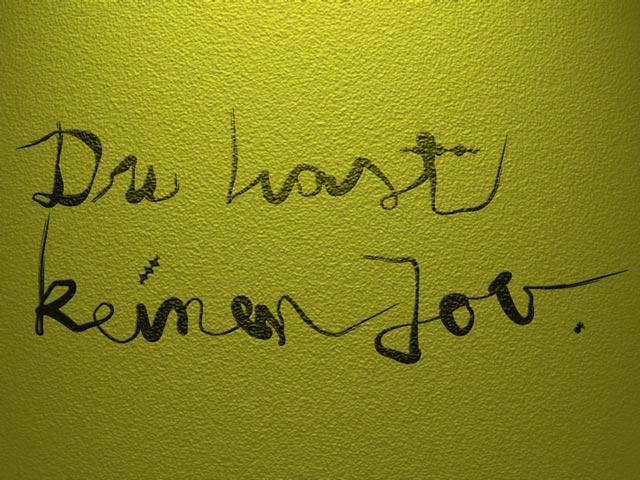 Du hast
keinen Job.